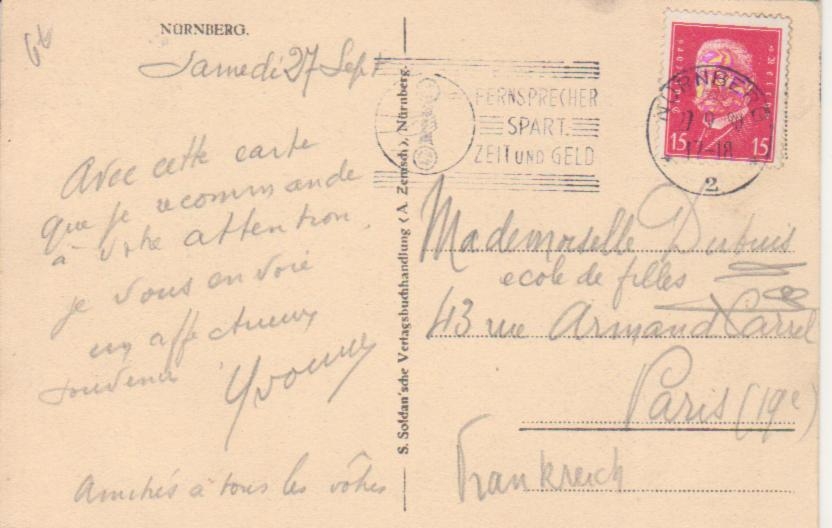 NÜRNBERG.
Samedi 27 Sept
Avec cette carte
que je recommande
à votre attention
je vous envoie
un affectueux
souvenir Yvonne
Amitiés à tous les vôtres
S. Soldan'sche Verlagsbuchhandlung (A. Zemsch), Nürnberg.
FERNSPRECHER
SPART.
ZEIT UND GELD
NÜRNBERG
17-18
2
15 15
Mademoiselle Dubuis
ecole de filles
43 rue Armand Carrel
Paris (19e)
Frankreich